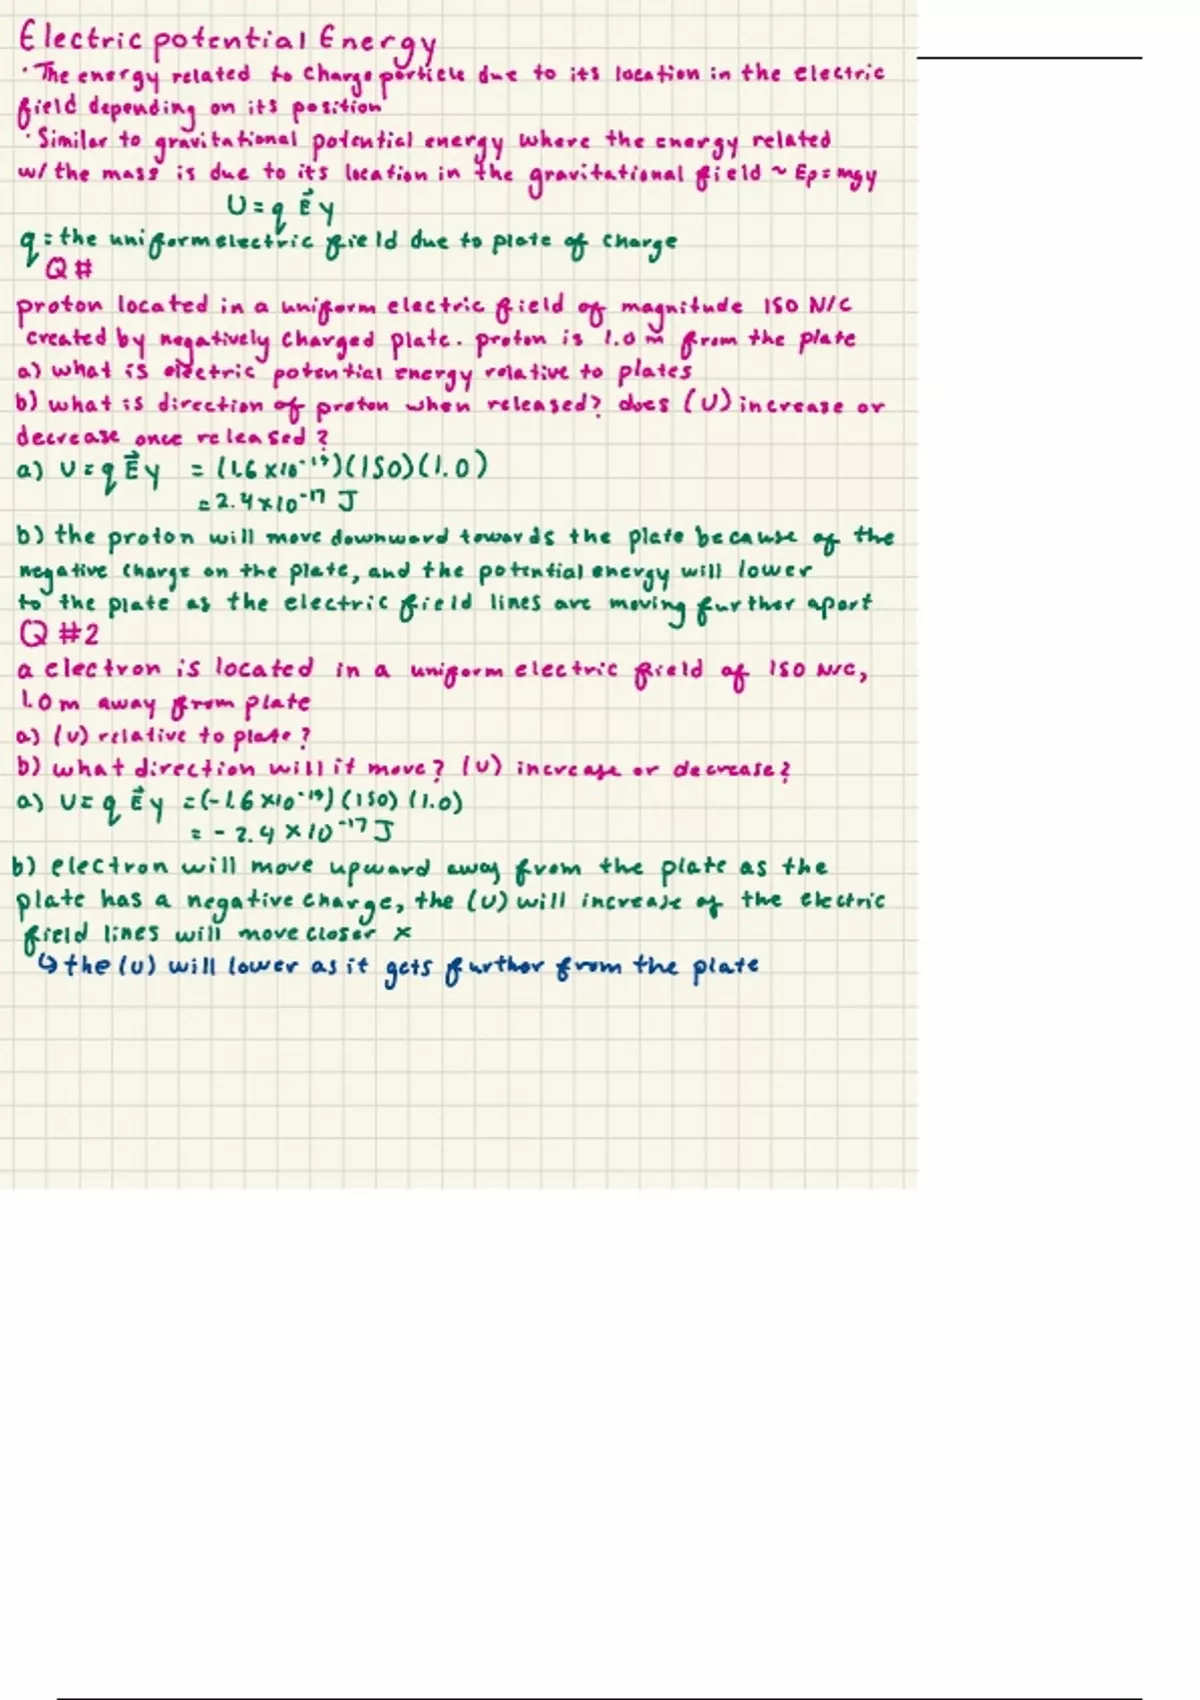 Electric potential Energy
· The energy related to charge particle due to its location in the electric
field depending on its position
· Similar to gravitational potential energy where the energy related
w/ the mass is due to its location in the gravitational field ~ Ep = mgy
U = q E⃗ y
q = the uniform electric field due to plate of charge
Q #
proton located in a uniform electric field of magnitude 150 N/C
created by negatively charged plate. proton is 1.0 m from the plate
a) what is electric potential energy relative to plates
b) what is direction of proton when released? does (U) increase or
decrease once released?
a) U = q E⃗ y = (1.6 x10⁻¹⁹)(150)(1.0)
= 2.4 x10⁻¹⁷ J
b) the proton will move downward towards the plate because of the
negative charge on the plate, and the potential energy will lower
to the plate as the electric field lines are moving further apart
Q #2
a electron is located in a uniform electric field of 150 N/C,
1.0 m away from plate
a) (U) relative to plate?
b) what direction will it move? (U) increase or decrease?
a) U = q E⃗ y = (-1.6 x10⁻¹⁹) (150) (1.0)
= - 2.4 x 10⁻¹⁷ J
b) electron will move upward away from the plate as the
plate has a negative charge, the (U) will increase of the electric
field lines will move closer x
↳ the (U) will lower as it gets further from the plate